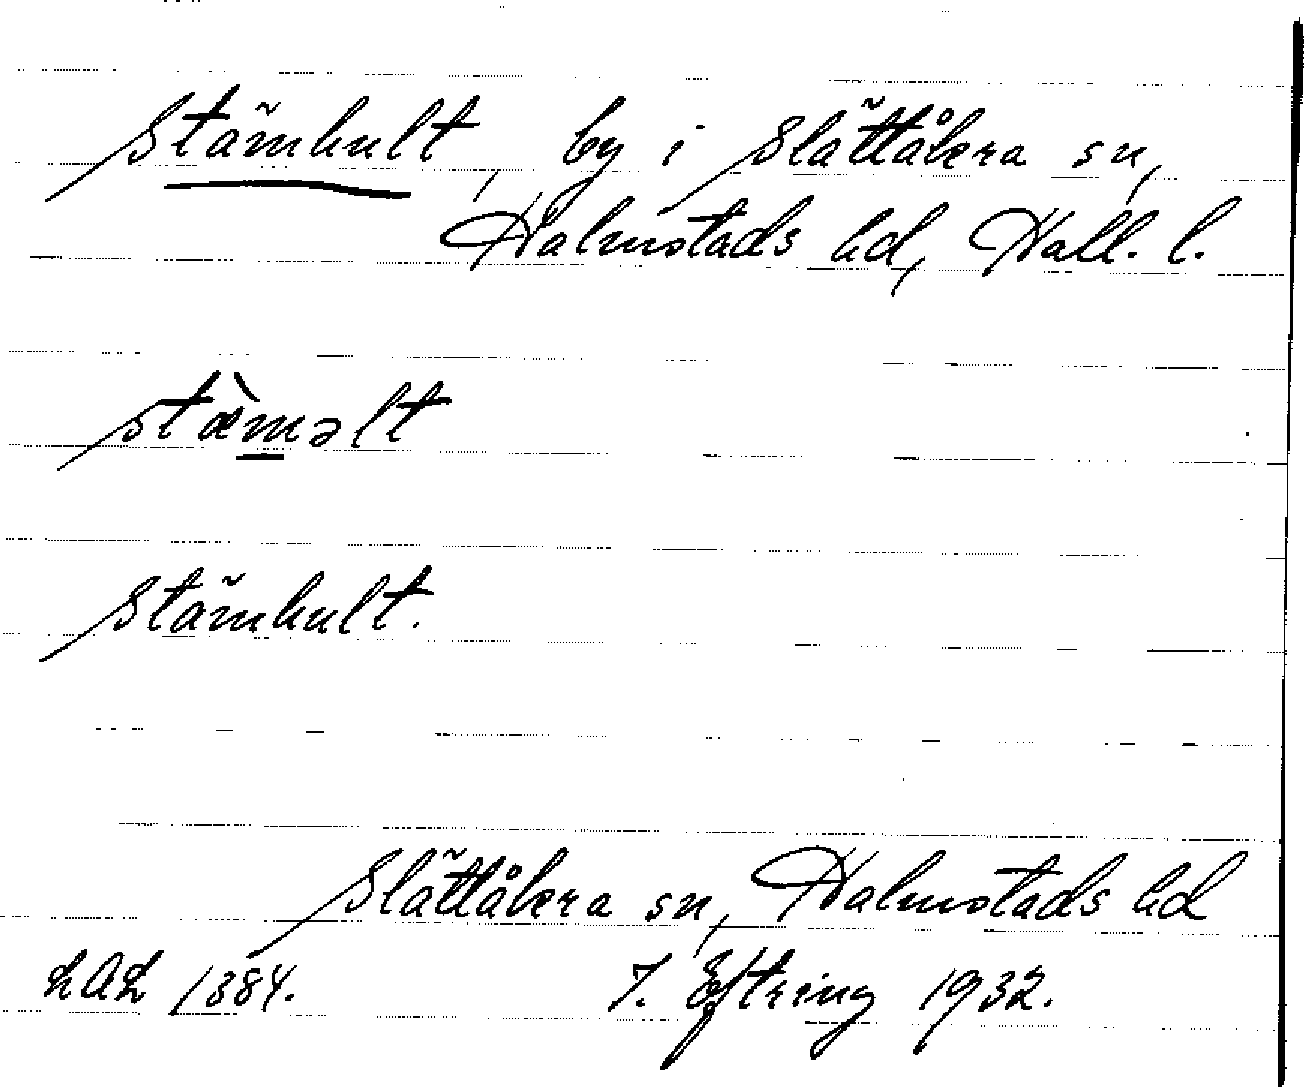 Stämhult, by i Slättåkra sn,
Halmstads hd, Hall. l.
stæ̀məlt
Stämhult.
Slättåkra sn, Halmstads hd
LAL 1384. J. Eftring 1932.